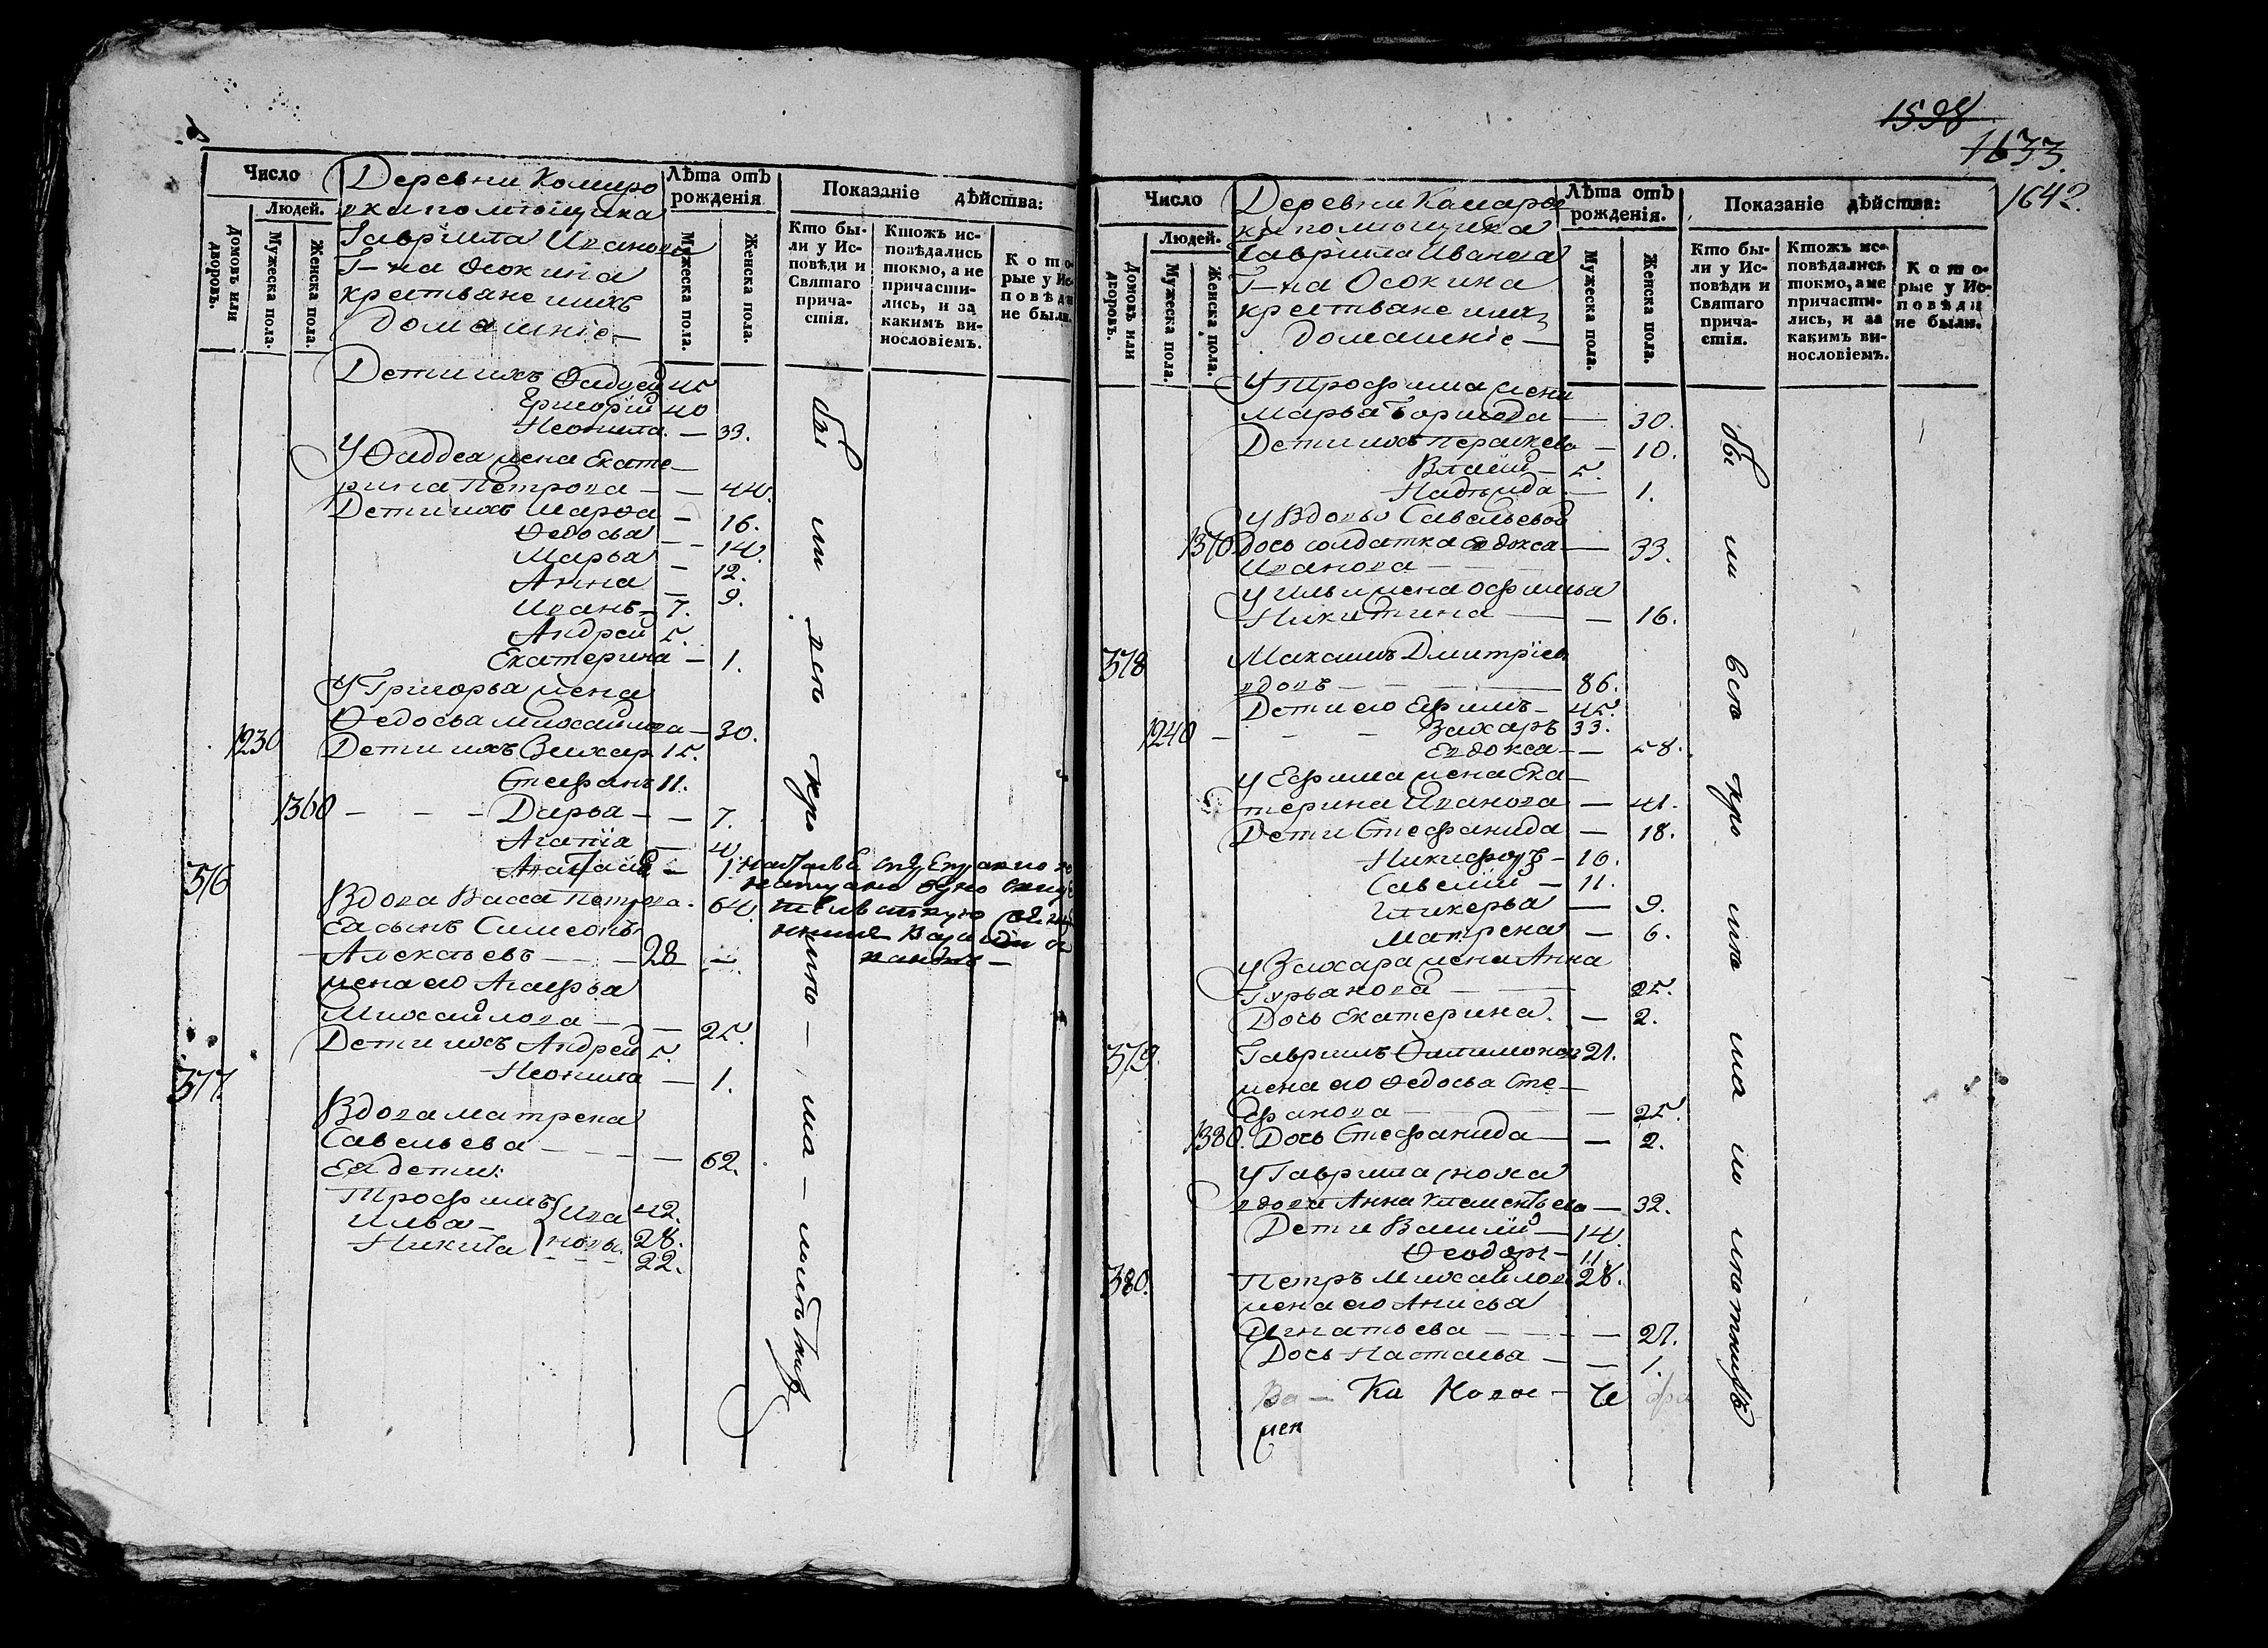 Число
Людей.
Домовъ или дворовъ.
Мужеска пола.
Женска пола.
Деревни Комаро
вки помѣщика
Гаврiила Иванова
Г-на Осокина
крестьяне и ихъ
домашнiе
Лѣта отъ рожденiя
Мужеска пола.
Женска пола.
Показанiе дѣйства:
Кто были у Исповѣди и Святаго причастiя.
Ктожъ исповѣдались токмо, а не причастились, и за какимъ винословiемъ.
Которые у Исповѣди не были.
Дети ихъ Фадѣй 45
Григорiй 40
Неонила — 33.
У Фаддея жена Екате-
рина Петрова — — 44.
Дети ихъ Марфа — 16.
Федосья — — 14.
Марья — 12.
Анна — 9.
Иванъ — 7.
Андрей 5.
Екатерина — 1.
У Григорья жена
Федосья Михайлова — 30.
1230 Дети ихъ Захар 15.
Стефанъ 11.
1360 — — — Дарья — — 7.
Агапiя — 4.
1.
376 Вдова Васса Петрова. 64.
Ея сынъ Симеонъ
Алексѣевъ — — — 28 —
жена его Агафья
Михайлова — — 25.
Дети ихъ Андрей 5.
Неонила — 1.
377. Вдова Матрена
Савельева — — — — 62.
Ея дети:
Трофимъ 42.
Илья — Ива 28.
Никита новы. 22.
бы ли всѣ кро мѣ — ма — лѣтныхъ
1598
1633.
1642.
Число
Людей.
Домовъ или дворовъ.
Мужеска пола.
Женска пола.
Деревни Камаров
ки помѣщика
Гаврiила Иванова
Г-на Осокина
крестьяне и их
домашнiе —
Лѣта отъ рожденiя.
Мужеска пола.
Женска пола.
Показанiе дѣйства:
Кто были у Исповѣди и Святаго причастiя.
Ктожъ исповѣдались токмо, а не причастились, и за какимъ винословiемъ.
Которые у Исповѣди не были.
У Трофима жена
Марья Борисова — 30.
Дети ихъ Параскева — 10.
Власiй — 5.
Надежда — 1.
У Вдовы Савельевой
1370 дочь солдатка Евдокса — 33.
Иванова —
У Ильи жена Офимья
Никитина — — 16.
378 Максимъ Дмитрiевъ
вдовъ — — — — 86.
Дети его Ефимъ — 45.
1240 — — — Захаръ 33.
Евдокса — — 58.
У Ефима жена Ека-
терина Иванова — 41.
Дети Стефанида — 18.
Никифоръ — 16.
Савелiй — 11.
Гликерья — 9.
Матрена — 6.
У Захара жена Анна
Гурьянова — — 25.
Дочь Екатерина. — 2.
379. Гаврiилъ Филимонов 21.
жена его Федосья Сте-
фанова — — 25.
1380. Дочь Стефанида — — 2.
У Гаврiила сноха
вдова Анна Климентьева — 32.
Дети Василiй — 14
Феодоръ — 11.
380. Петръ Михайлов 28.
жена его Анисья
Игнатьева — — — 27.
Дочь Настасья — — 1.
бы ли всѣ кро мѣ ма ло лѣтнихъ